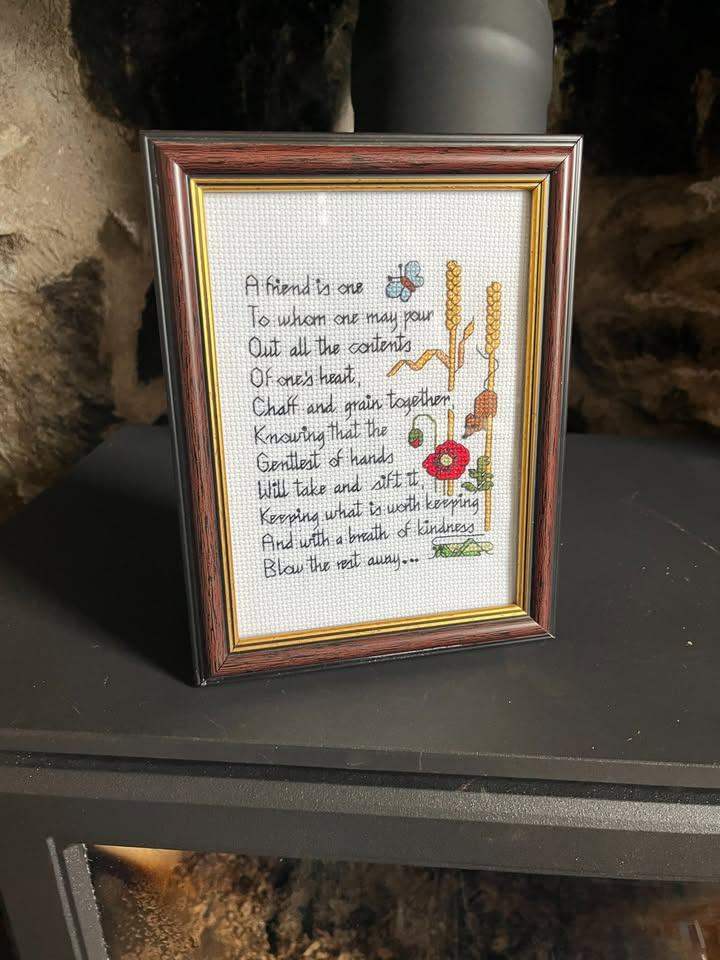 A friend is one
To whom one may pour
Out all the contents
Of one's heart,
Chaff and grain together,
Knowing that the
Gentlest of hands
Will take and sift it,
Keeping what is worth keeping
And with a breath of kindness
Blow the rest away...